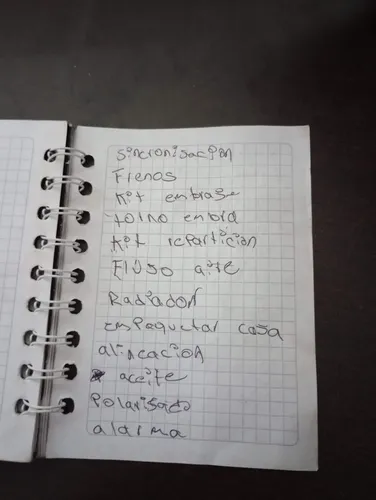 sincronisación
Frenos
Kit embrage
torno
Kit repartición
Fluso aire
Radiador
empaquetar casa
alineación
aceite
Polarisado
alarma